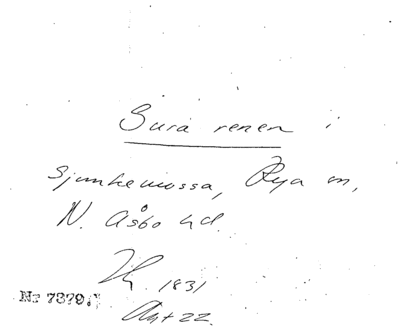 Sura renen i
Sjunkemossa, Rya sn,
N. Åsbo hd.
1831
Ant 22
Nr 7379.